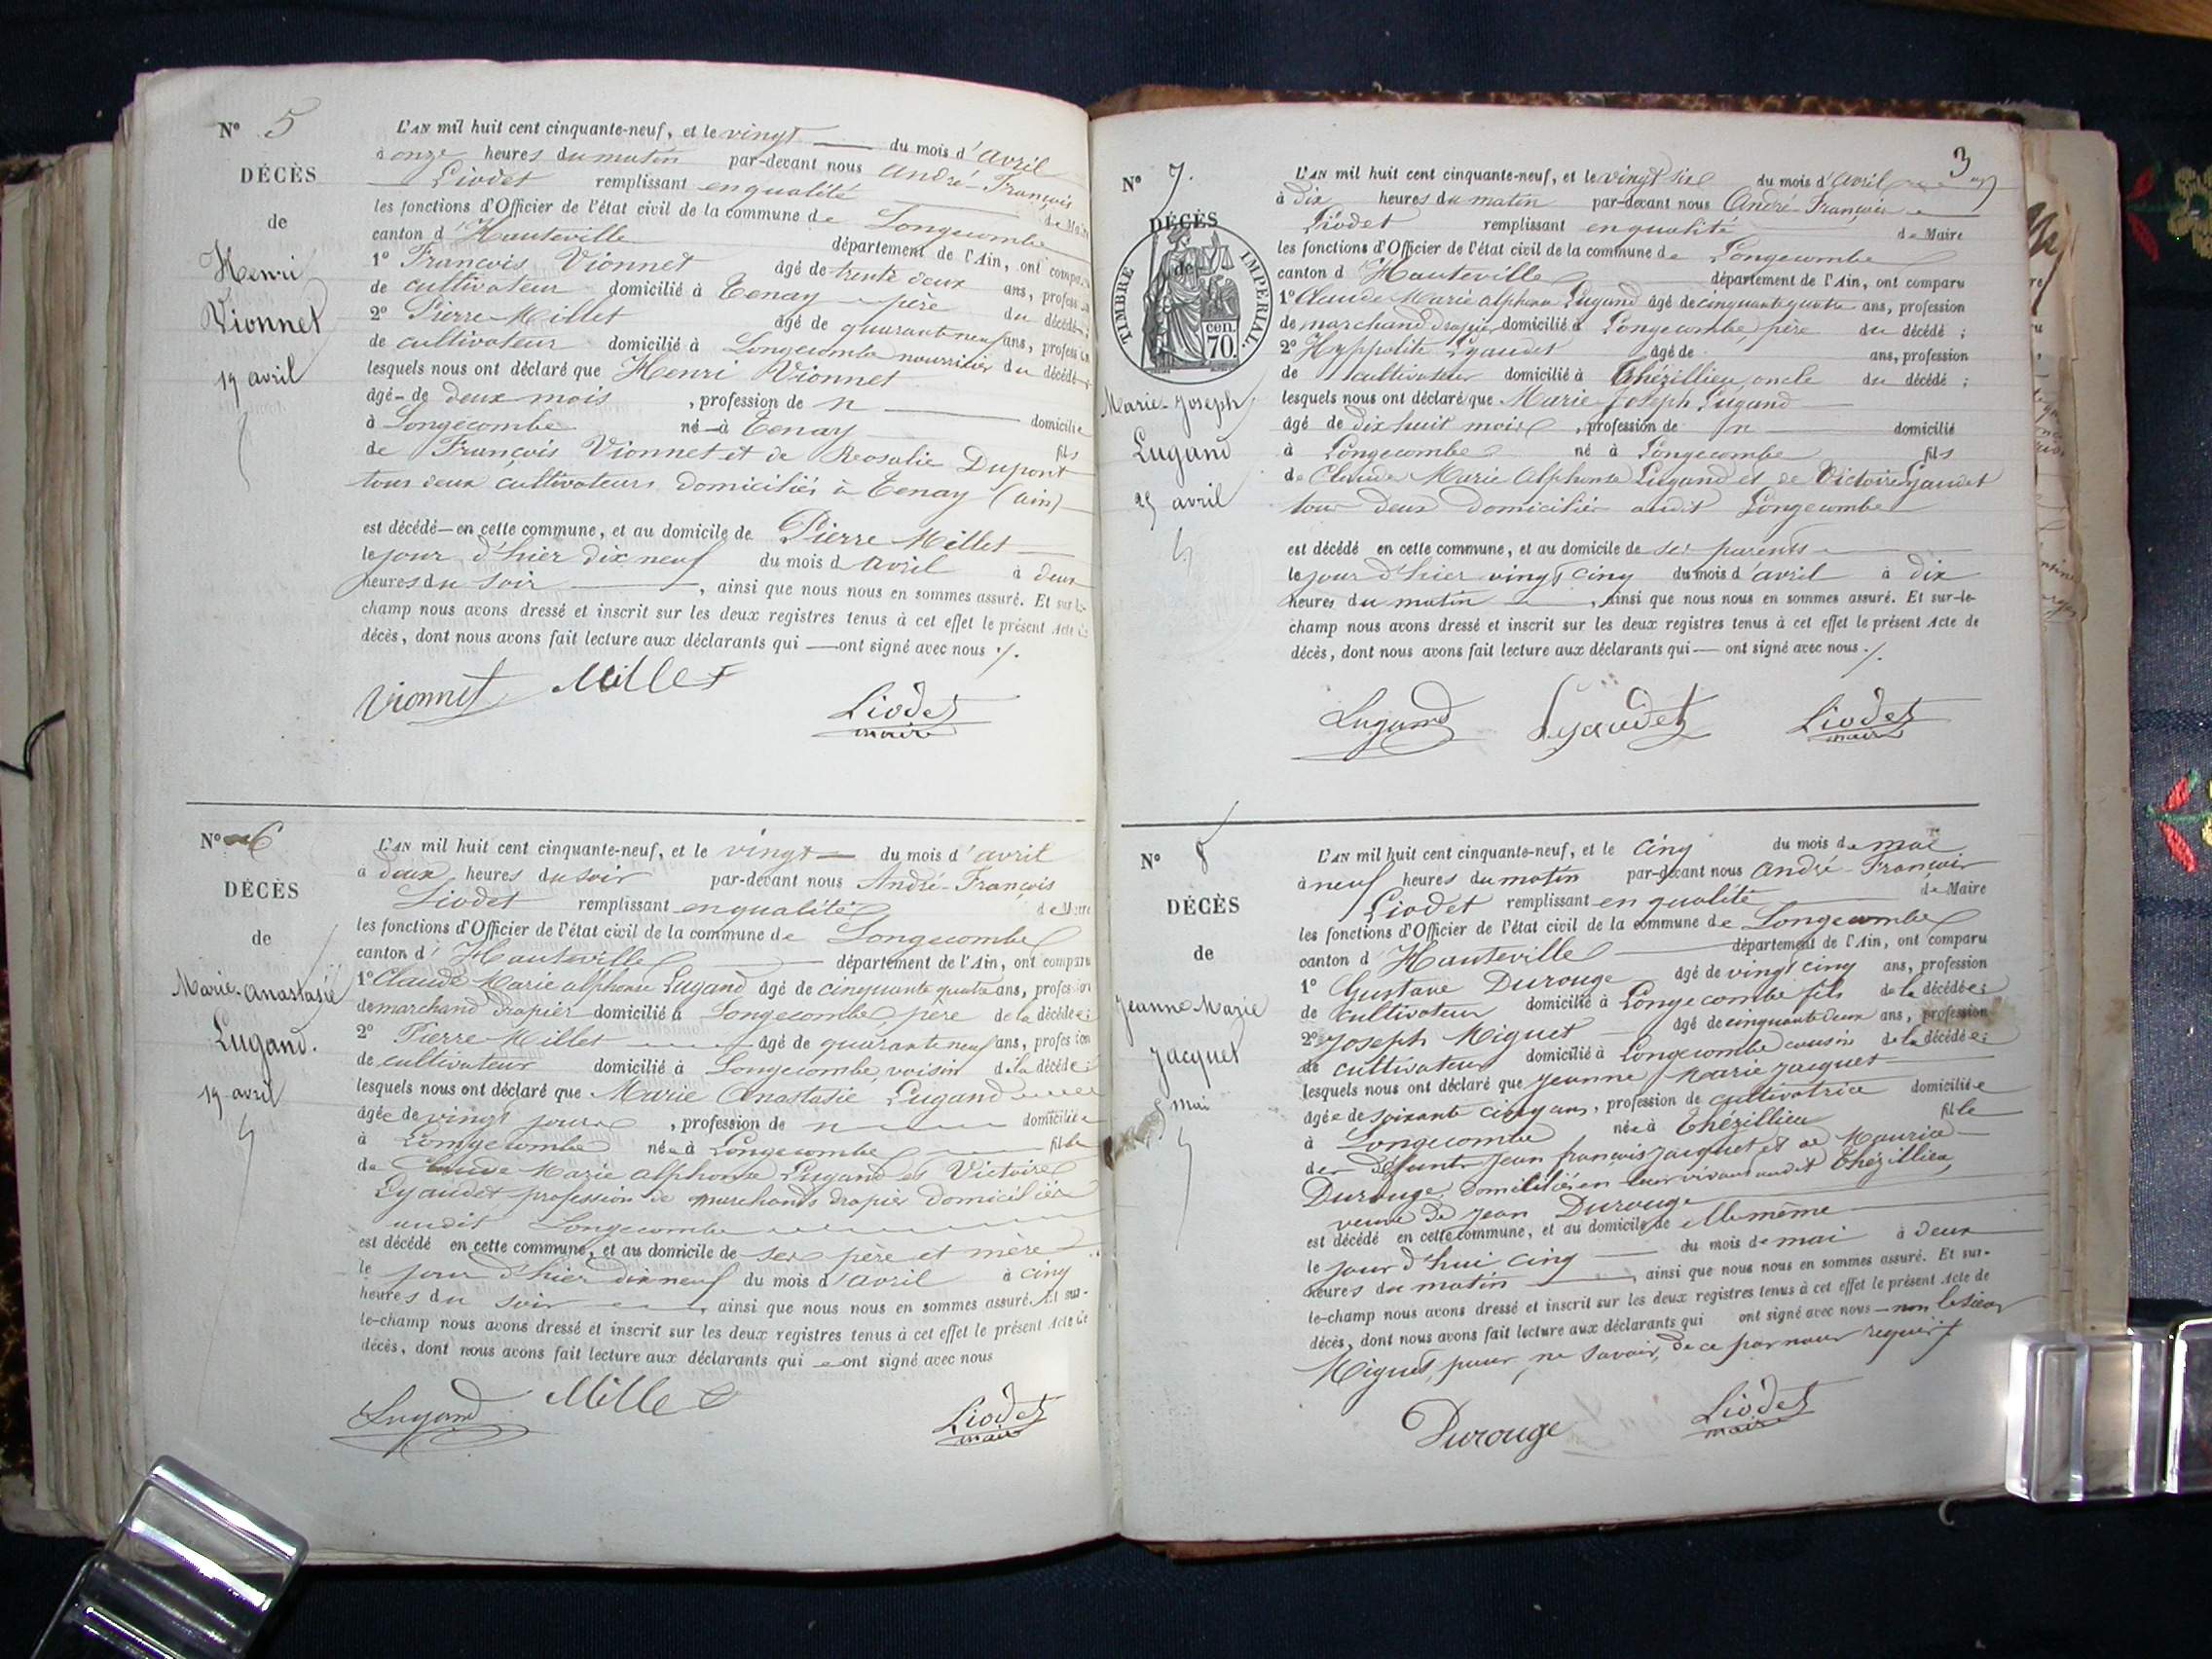 N° 5
DÉCÈS
de
Henri
Vionnet
19 avril
L'AN mil huit cent cinquante-neuf, et le vingt du mois d'avril
à onze heures du matin par-devant nous André-François
Liodet remplissant en qualité de Maire
les fonctions d'Officier de l'état civil de la commune de Longecombe
canton d'Hauteville département de l'Ain, ont comparu
1° François Vionnet âgé de trente deux ans, profession
de cultivateur domicilié à Tenay père du décédé;
2° Pierre Millet âgé de quarante neuf ans, profession
de cultivateur domicilié à Longecombe nourricier du décédé;
lesquels nous ont déclaré que Henri Vionnet
âgé de deux mois, profession de n domicilié
à Longecombe né à Tenay fils
de François Vionnet et de Rosalie Dupont
tous deux cultivateurs domiciliés à Tenay (ain)
est décédé en cette commune, et au domicile de Pierre Millet
le jour d'hier dix neuf du mois d'avril à deux
heures du soir, ainsi que nous nous en sommes assuré. Et sur-le-
champ nous avons dressé et inscrit sur les deux registres tenus à cet effet le présent Acte de
décès, dont nous avons fait lecture aux déclarants qui ont signé avec nous ./.
Vionnet Millet Liodet
maire
N° 6
DÉCÈS
de
Marie-Anastasie
Lugand.
19 avril
L'AN mil huit cent cinquante-neuf, et le vingt du mois d'avril
à deux heures du soir par-devant nous André-François
Liodet remplissant en qualité de Maire
les fonctions d'Officier de l'état civil de la commune de Longecombe
canton d'Hauteville département de l'Ain, ont comparu
1° Claude Marie alphonse Lugand âgé de cinquante quatre ans, profession
de marchand drapier domicilié à Longecombe, père de la décédée;
2° Pierre Millet âgé de quarante neuf ans, profession
de cultivateur domicilié à Longecombe, voisin de la décédée;
lesquels nous ont déclaré que Marie Anastasie Lugand
âgée de vingt jours, profession de n domiciliée
à Longecombe née à Longecombe fille
de Claude Marie alphonse Lugand et Victoire
Lyaudet profession de marchands drapier domiciliés
audit Longecombe
est décédé en cette commune, et au domicile de ses père et mère
le jour d'hier dix neuf du mois d'avril à cinq
heures du soir, ainsi que nous nous en sommes assuré. Et sur-
le-champ nous avons dressé et inscrit sur les deux registres tenus à cet effet le présent Acte de
décès, dont nous avons fait lecture aux déclarants qui ont signé avec nous
Lugand Millet Liodet
maire
3
N° 7.
DÉCÈS
de
TIMBRE IMPÉRIAL.
70 cen.
Marie-Joseph
Lugand
25 avril
L'AN mil huit cent cinquante-neuf, et le vingt six du mois d'avril
à dix heures du matin par-devant nous André-François
Liodet remplissant en qualité de Maire
les fonctions d'Officier de l'état civil de la commune de Longecombe
canton d'Hauteville département de l'Ain, ont comparu
1° Claude Marie alphonse Lugand âgé de cinquante quatre ans, profession
de marchand drapier domicilié à Longecombe, père du décédé;
2° Hyppolite Lyaudet âgé de ans, profession
de cultivateur domicilié à Thézillieu, oncle du décédé;
lesquels nous ont déclaré que Marie-Joseph Lugand
âgé de dix huit mois, profession de n domicilié
à Longecombe né à Longecombe fils
de Claude Marie Alphonse Lugand et de Victoire Lyaudet
tous deux domiciliés audit Longecombe
est décédé en cette commune, et au domicile de ses parents
le jour d'hier vingt cinq du mois d'avril à dix
heures du matin, ainsi que nous nous en sommes assuré. Et sur-le-
champ nous avons dressé et inscrit sur les deux registres tenus à cet effet le présent Acte de
décès, dont nous avons fait lecture aux déclarants qui ont signé avec nous ./.
Lugand Lyaudet Liodet
maire
N° 8
DÉCÈS
de
Jeanne Marie
Jacquet
5 mai
L'AN mil huit cent cinquante-neuf, et le cinq du mois de mai
à neuf heures du matin par-devant nous André-François
Liodet remplissant en qualité de Maire
les fonctions d'Officier de l'état civil de la commune de Longecombe
canton d'Hauteville département de l'Ain, ont comparu
1° Gustave Durouge âgé de vingt cinq ans, profession
de cultivateur domicilié à Longecombe fils de la décédée;
2° Joseph Miguet âgé de cinquante deux ans, profession
de cultivateur domicilié à Longecombe cousin de la décédée;
lesquels nous ont déclaré que Jeanne Marie Jacquet
âgée de soixante cinq ans, profession de cultivatrice domiciliée
à Longecombe née à Thézillieu fille
de défunts Jean françois Jacquet et de Maurice
Durouge, domiciliés en leur vivant audit Thézillieu,
veuve de Jean Durouge
est décédé en cette commune, et au domicile de elle même
le jour d'hui cinq du mois de mai à deux
heures du matin, ainsi que nous nous en sommes assuré. Et sur-
le-champ nous avons dressé et inscrit sur les deux registres tenus à cet effet le présent Acte de
décès, dont nous avons fait lecture aux déclarants qui ont signé avec nous non le sieur
Miguet, pour ne savoir, de ce par nous requis
Durouge Liodet
maire